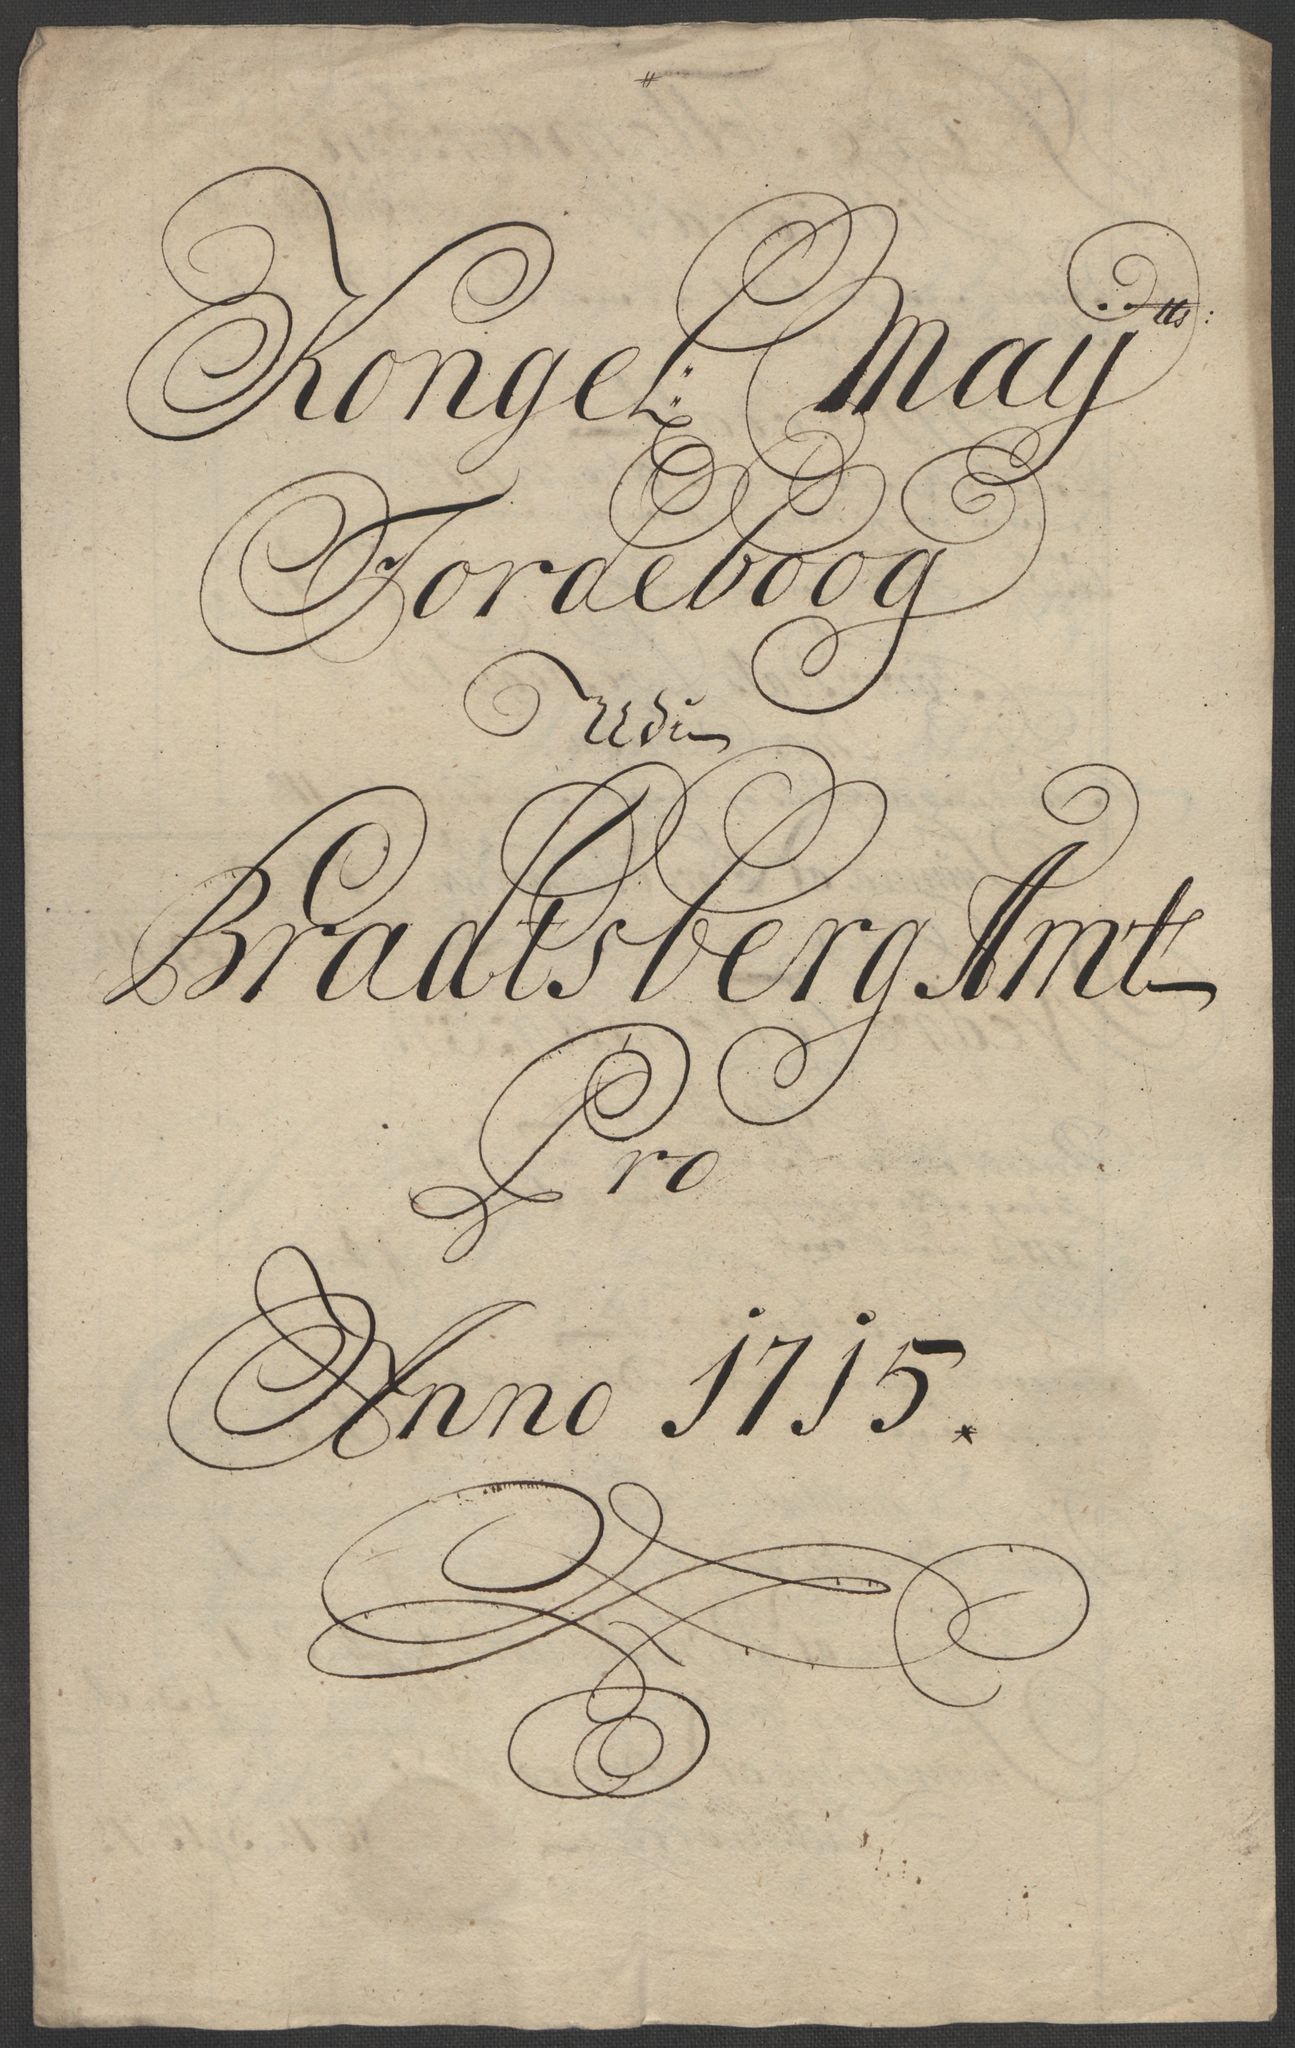 Kongel: Mayᵗᵗˢ:
Jordeboog
Udi
Bradtsberg Amt
Pro
Anno 1715.